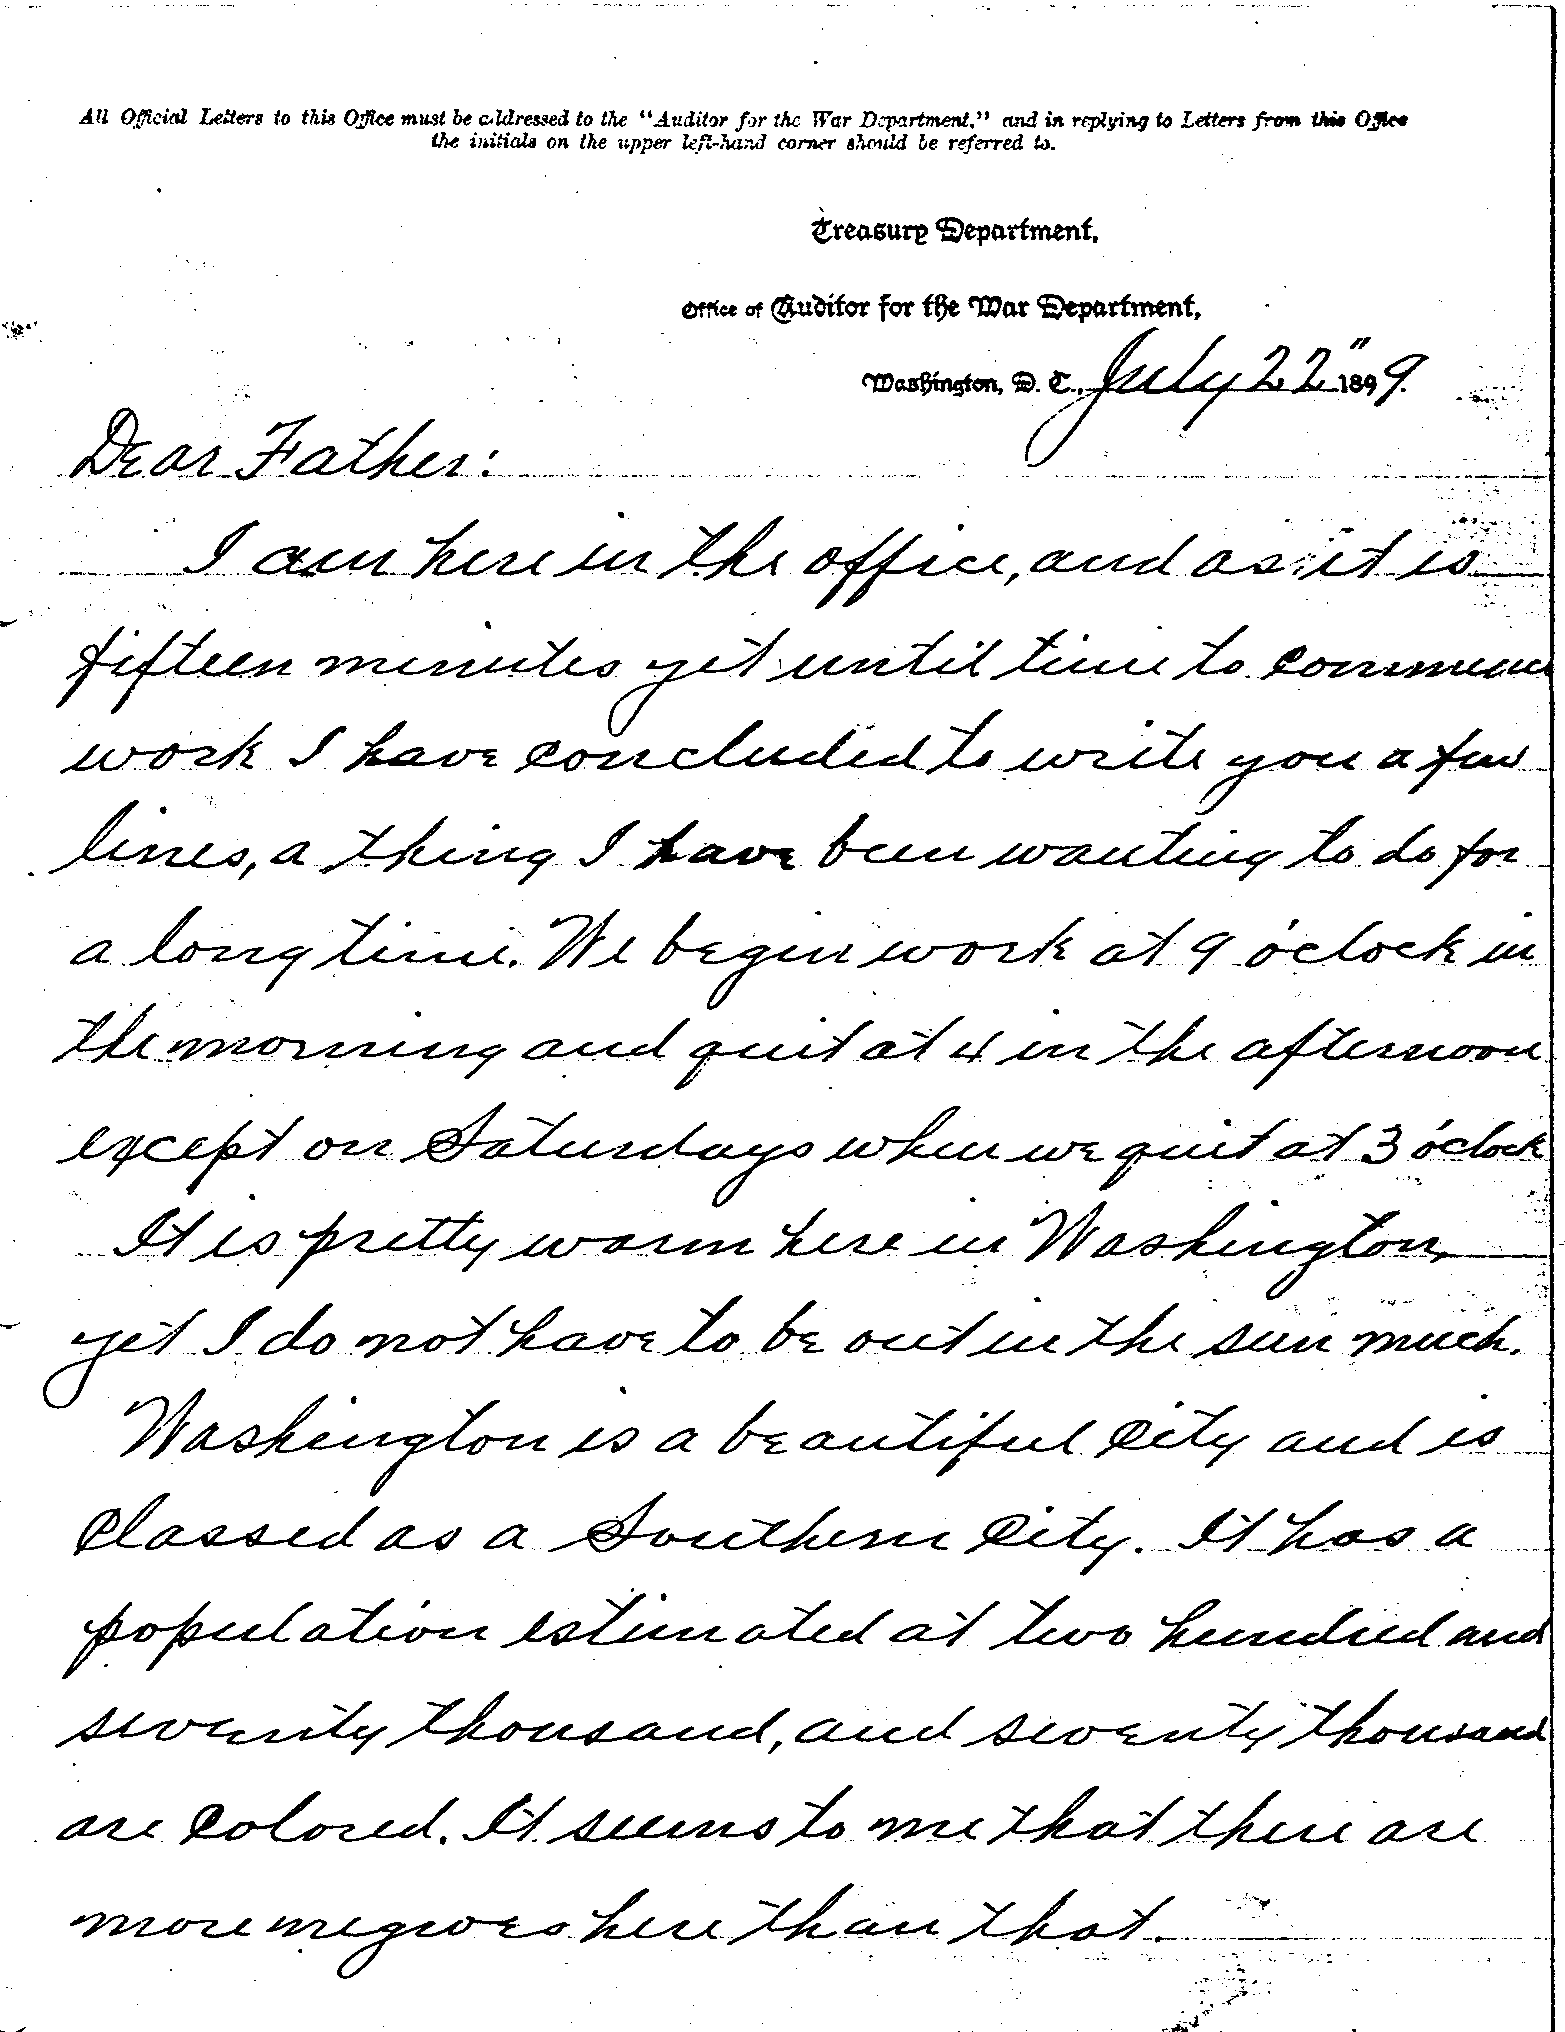 All Official Letters to this Office must be addressed to the "Auditor for the War Department," and in replying to Letters from this Office
the initials on the upper left-hand corner should be referred to.
Treasury Department,
Office of Auditor for the War Department,
Washington, D. C., July 22" 1899.
Dear Father:
I am here in the office, and as it is
fifteen minutes yet until time to commence
work I have concluded to write you a few
lines, a thing I have been wanting to do for
a long time. We begin work at 9 o'clock in
the morning and quit at 4 in the afternoon
except on Saturdays when we quit at 3 o'clock
It is pretty warm here in Washington,
yet I do not have to be out in the sun much.
Washington is a beautiful City and is
Classed as a Southern City. It has a
population estimated at two hundred and
seventy thousand, and seventy thousand
are Colored. It seems to me that there are
more negroes here than that.